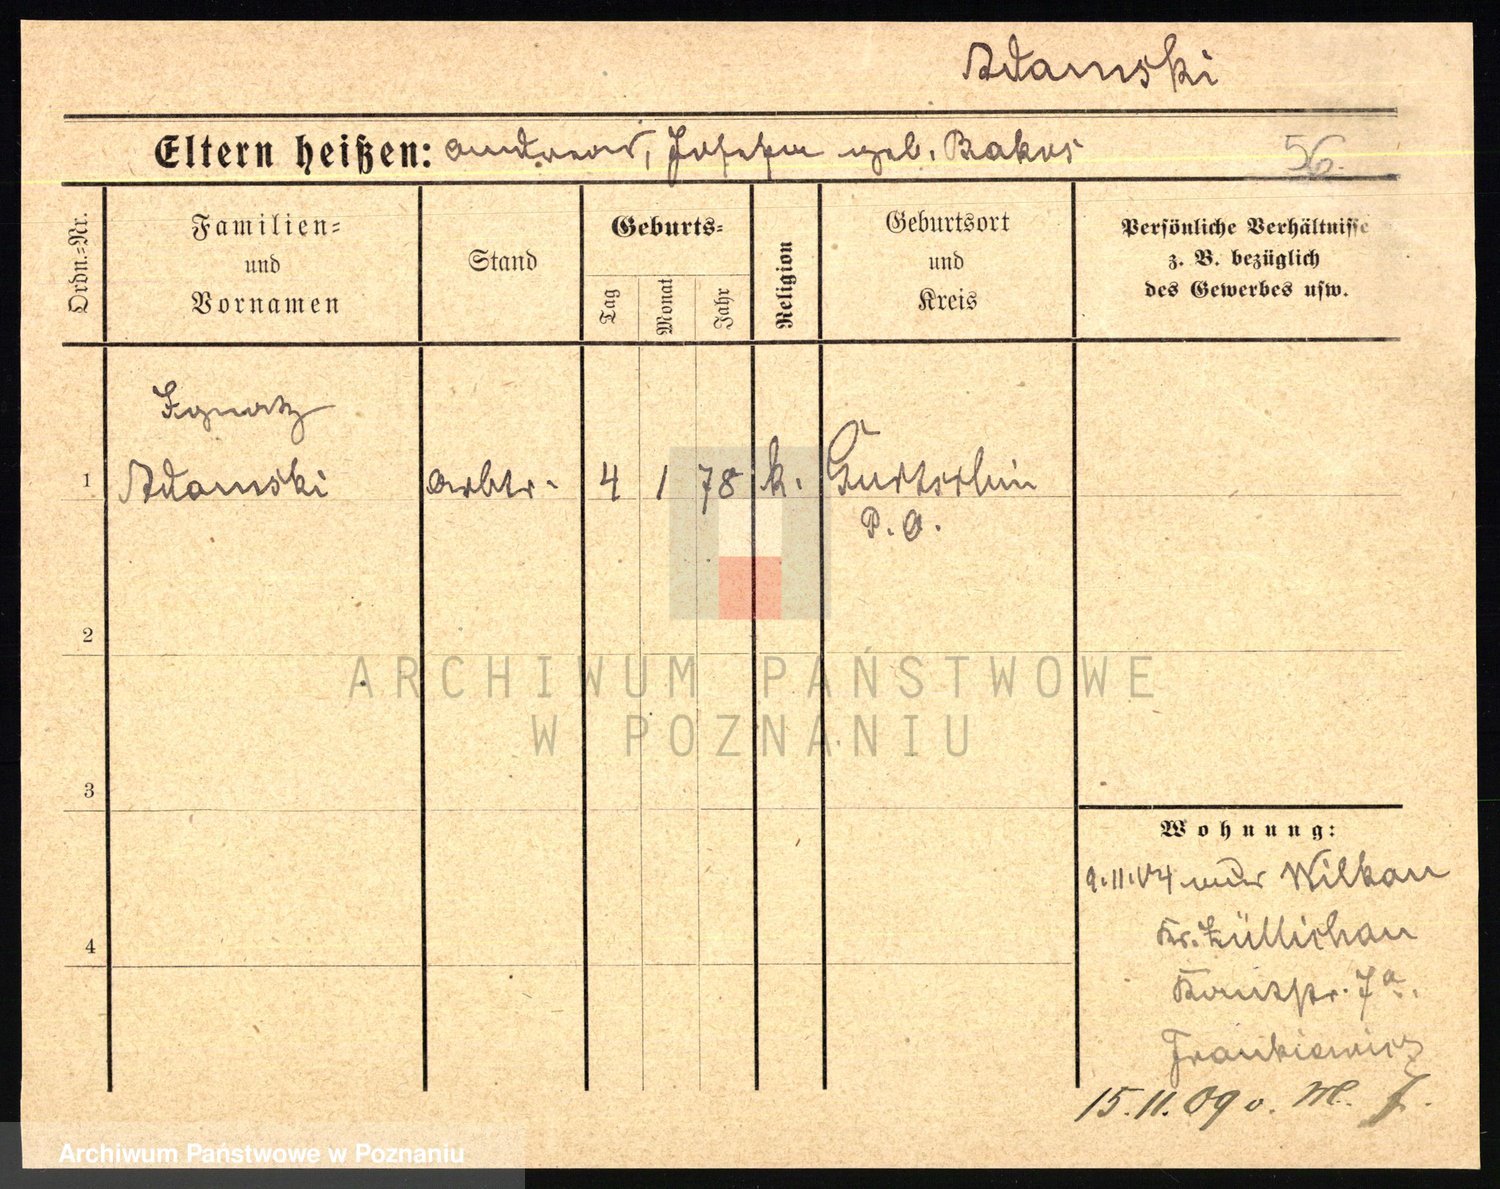 Adamski
Eltern heißen: Andreas, Josefa geb. Bakos
56.
Ordn.=Nr.
Familien=
und
Vornamen
Stand
Geburts=
Tag
Monat
Jahr
Religion
Geburtsort
und
Kreis
Persönliche Verhältnisse
z. B. bezüglich
des Gewerbes usw.
Ignatz
1 Adamski arbtr. 4 1 78 k.
P. O.
2
3
4
Wohnung:
9.11.04 Wilkau
Kr. Züllichau
7a.
Frankiewicz
15.11.09 v.
ARCHIWUM PAŃSTWOWE
W POZNANIU
Archiwum Państwowe w Poznaniu